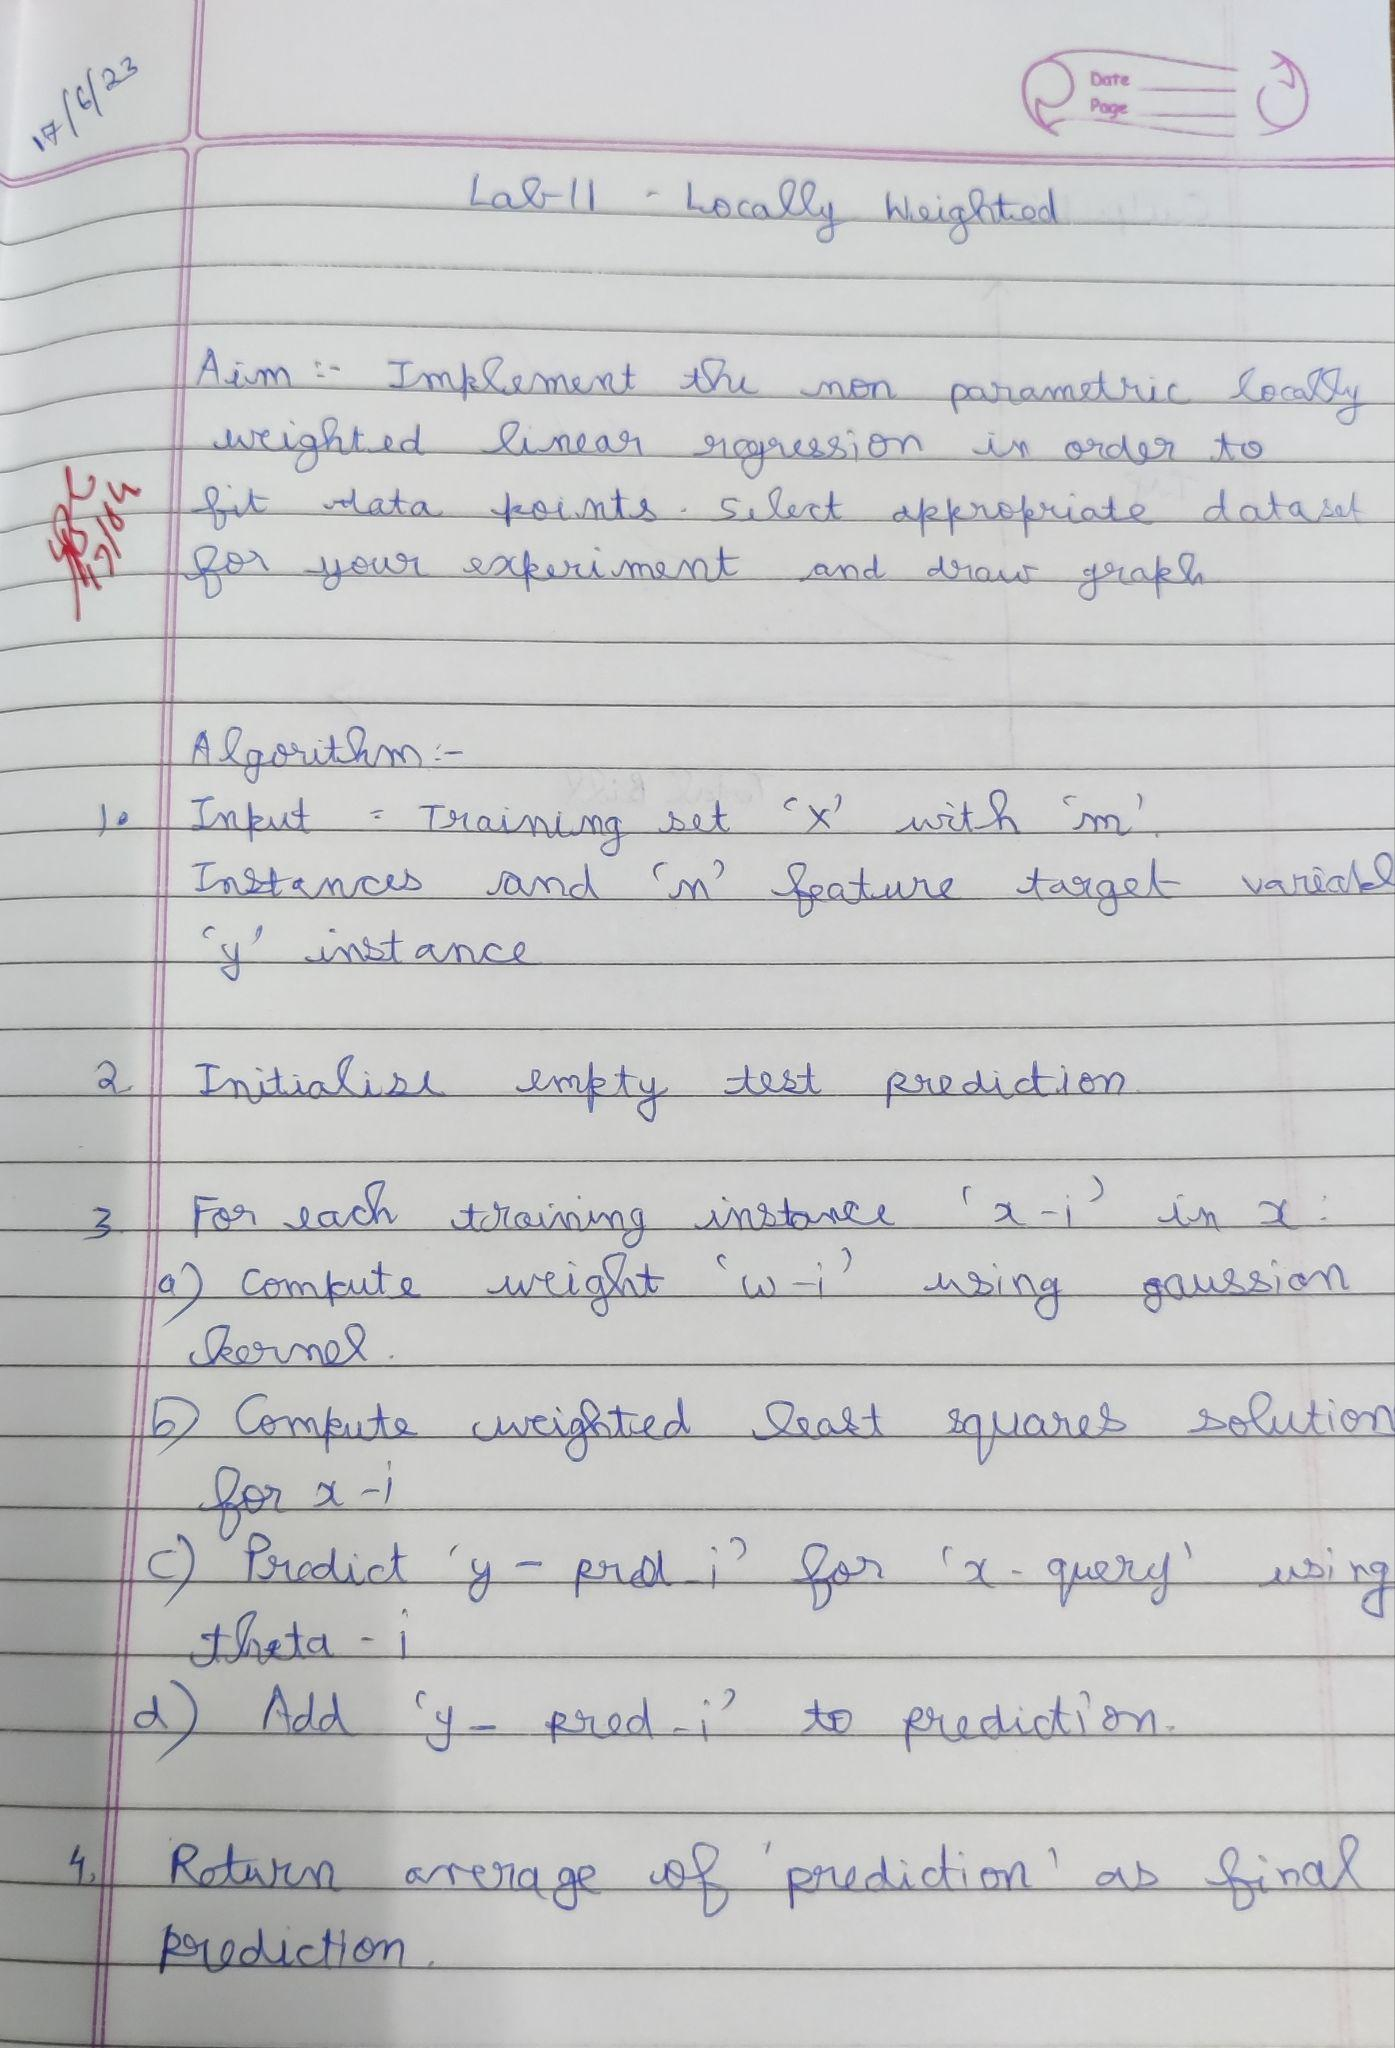 17/6/23
Date
Page
Lab-11 - Locally Weighted
Aim :- Implement the non parametric locally
weighted linear regression in order to
fit data points. Select appropriate dataset
for your experiment and draw graph
Algorithm :-
1. Input = Training set 'x' with 'm'.
Instances and 'n' feature target variabl
'y' instance
2 Initialise empty test prediction
3 For each training instance 'x-i' in x:
a) Compute weight 'w-i' using gaussian
kernel.
b) Compute weighted least squares solution
for x-i
c) Predict 'y-pred-i' for 'x-query' using
theta-i
d) Add 'y-pred-i' to prediction.
4. Return average of 'prediction' as final
prediction.